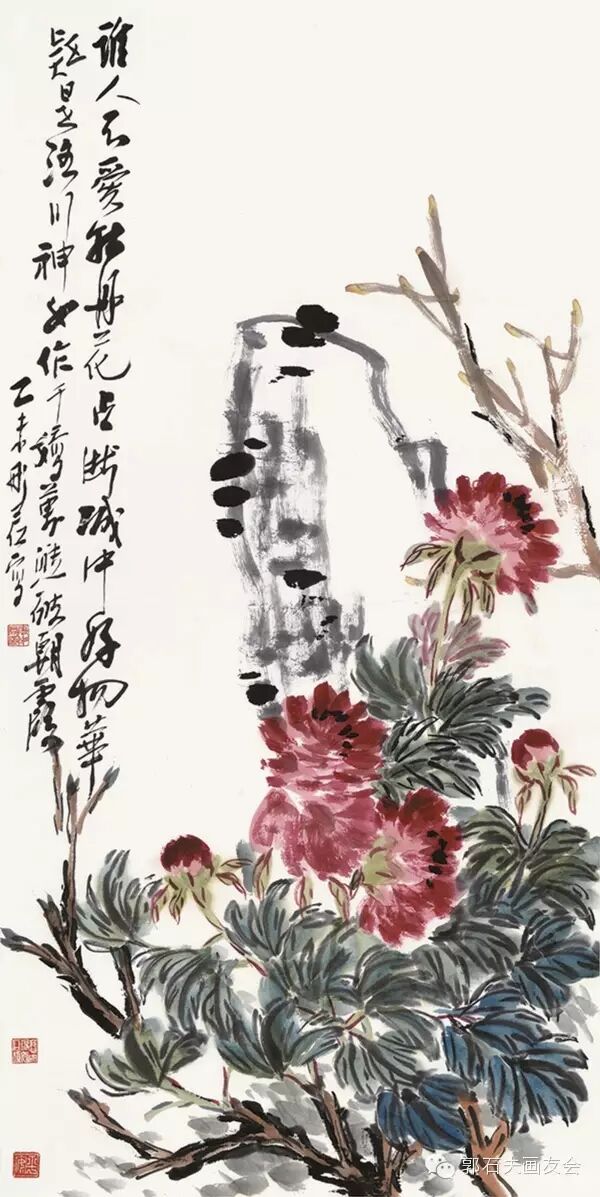 谁人不爱牡丹花占断城中好物華
疑是洛川神女作千嬌萬態破朝霞
乙未郭石夫寫
郭石夫画友会